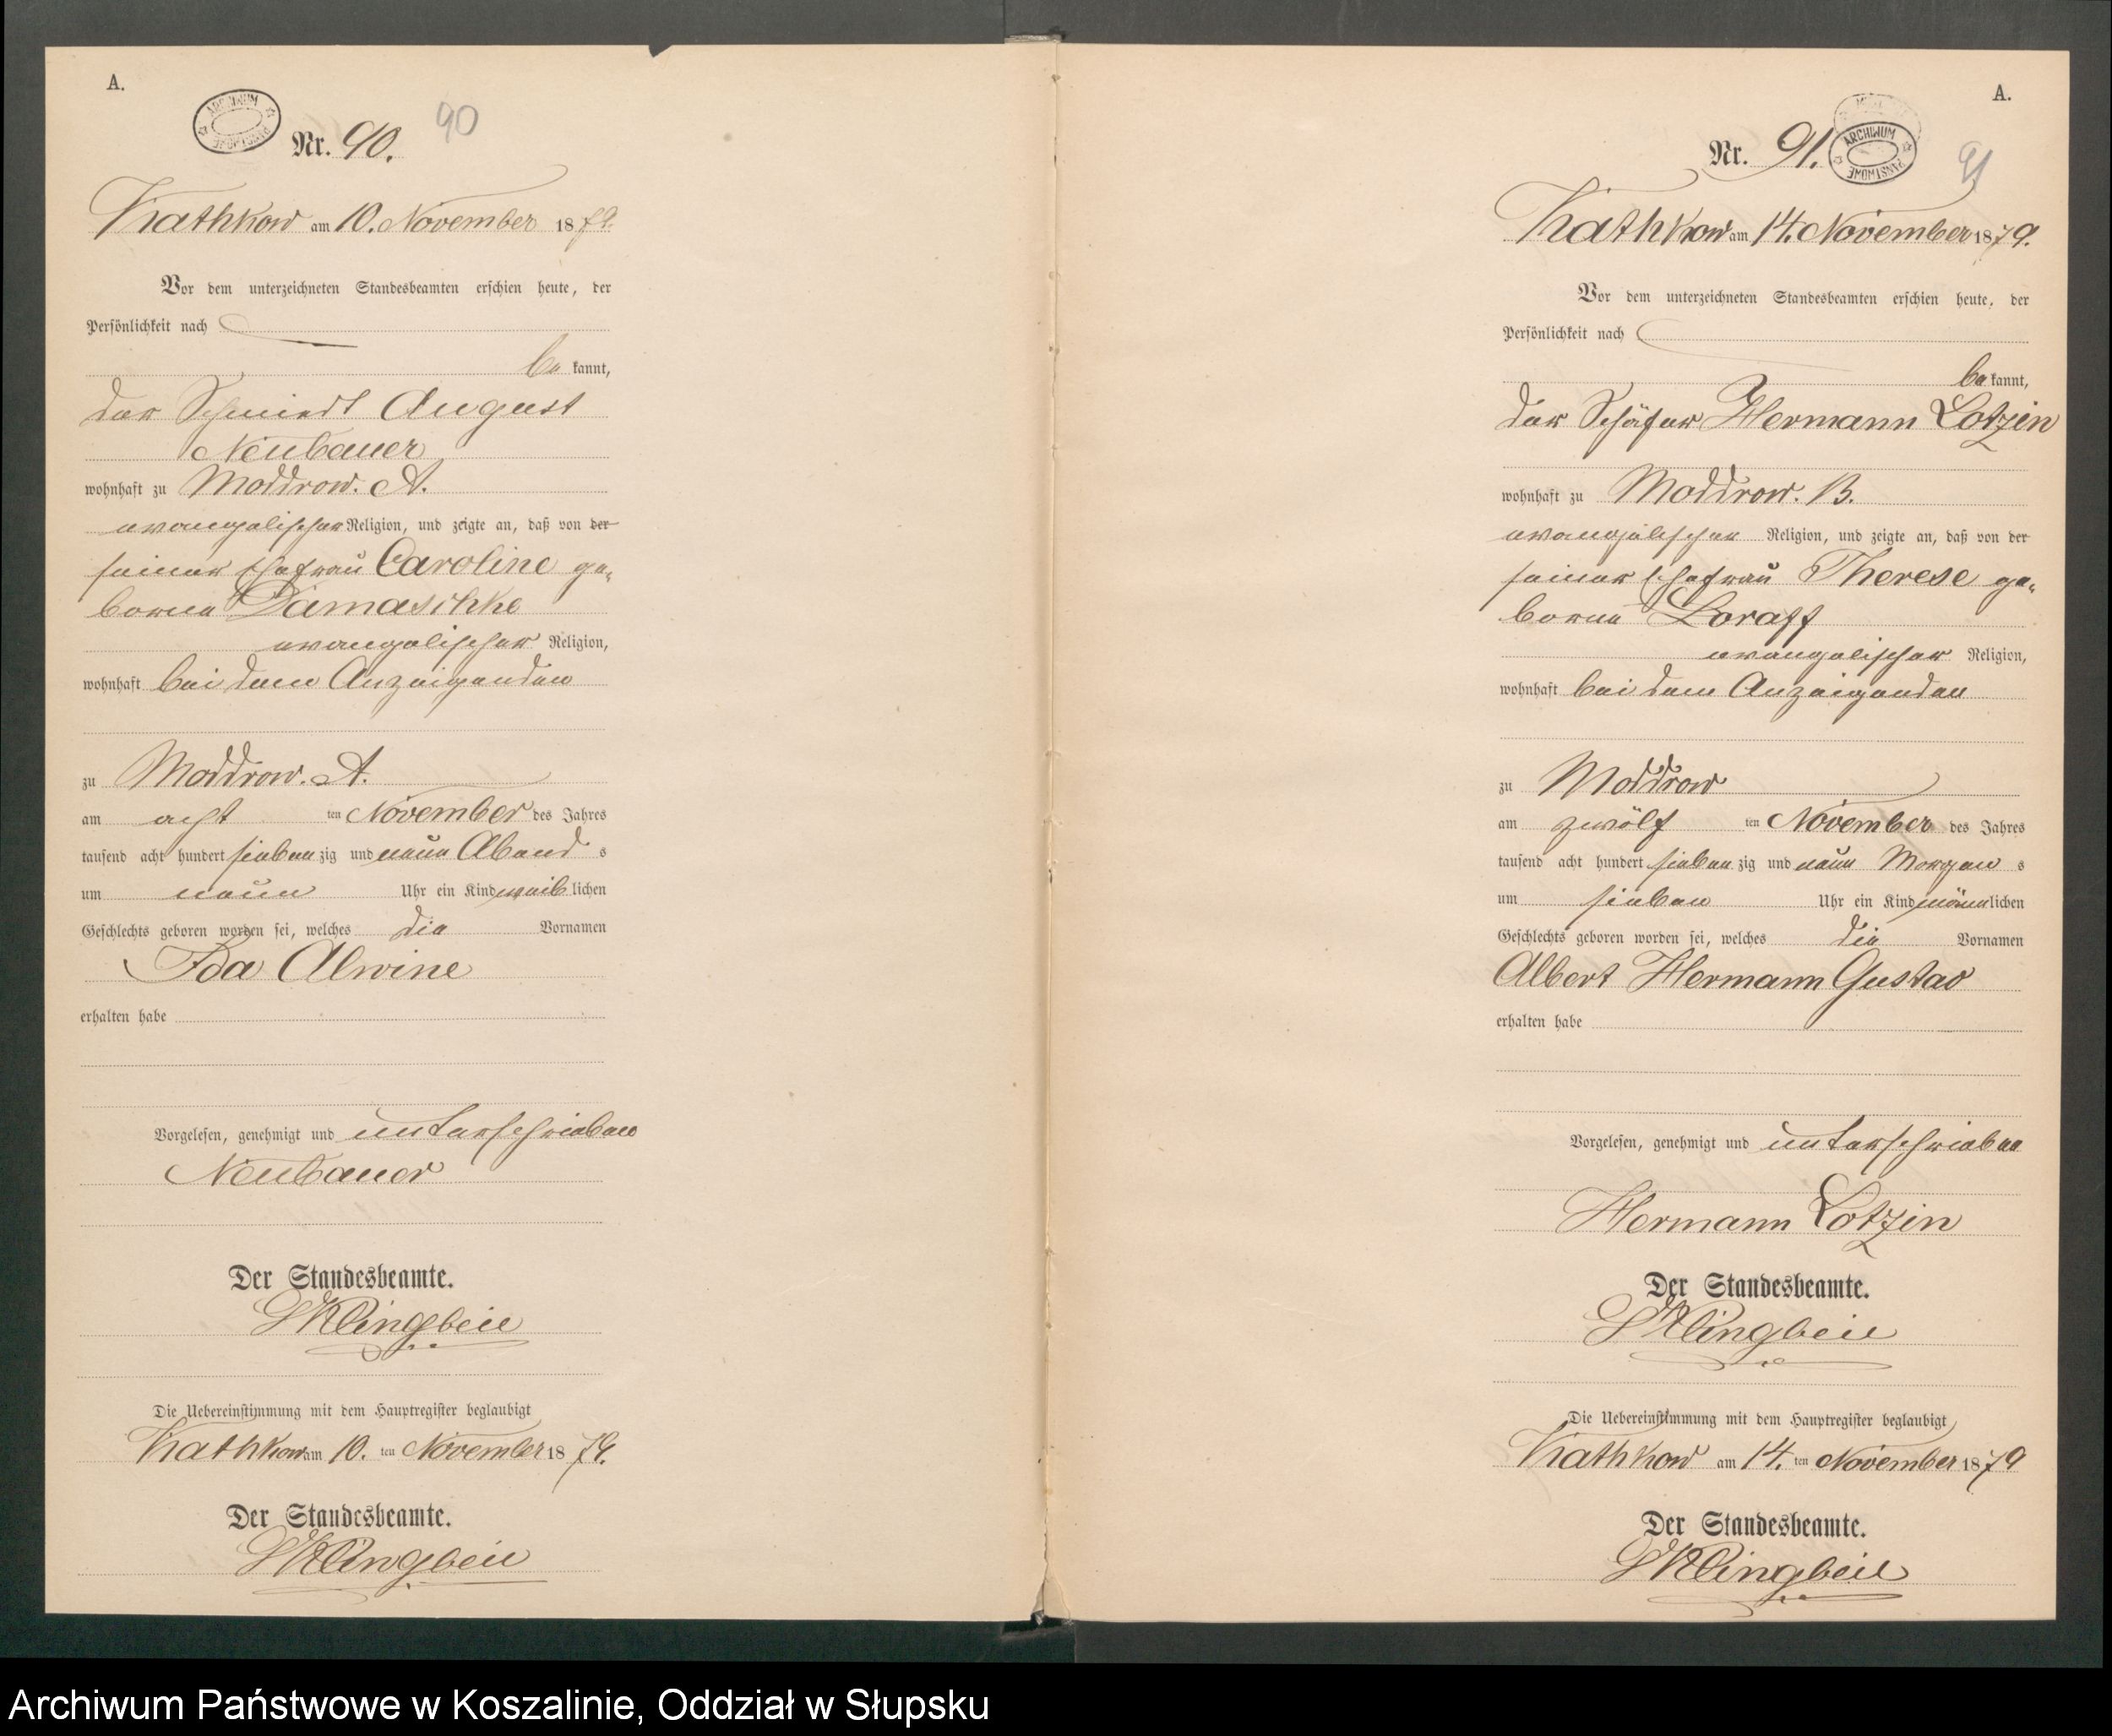 A.
ARCHIWUM PAŃSTWOWE
Nr. 90.
90
Kathkow am 10. November 1879.
Vor dem unterzeichneten Standesbeamten erschien heute, der
Persönlichkeit nach
be kannt,
der Schmiedt August
Neubauer
wohnhaft zu Moddrow. A.
evangelischer Religion, und zeigte an, daß von der
seiner Ehefrau Caroline ge-
borne Damaschke
evangelischer Religion,
wohnhaft bei dem Anzeigenden
zu Moddrow. A.
am acht ten November des Jahres
tausend acht hundert sieben zig und neun Abend s
um neun Uhr ein Kind weib lichen
Geschlechts geboren worden sei, welches die Vornamen
Ida Alwine
erhalten habe
Vorgelesen, genehmigt und unterschrieben
Neubauer
Der Standesbeamte.
Klingbeil
Die Uebereinstimmung mit dem Hauptregister beglaubigt
Kathkow am 10. ten November 1879.
Der Standesbeamte.
Klingbeil
A.
Nr. 91.
ARCHIWUM PAŃSTWOWE
91
Kathkow am 14. November 1879.
Vor dem unterzeichneten Standesbeamten erschien heute, der
Persönlichkeit nach
be kannt,
der Schäfer Hermann Lotzin
wohnhaft zu Moddrow. B.
evangelischer Religion, und zeigte an, daß von der
seiner Ehefrau Therese ge-
borne Loraff
evangelischer Religion,
wohnhaft bei dem Anzeigenden
zu Moddrow
am zwölf ten November des Jahres
tausend acht hundert sieben zig und neun Morgen s
um sieben Uhr ein Kind männ lichen
Geschlechts geboren worden sei, welches die Vornamen
Albert Hermann Gustav
erhalten habe
Vorgelesen, genehmigt und unterschrieben
Hermann Lotzin
Der Standesbeamte.
Klingbeil
Die Uebereinstimmung mit dem Hauptregister beglaubigt
Kathkow am 14. ten November 1879
Der Standesbeamte.
Klingbeil
Archiwum Państwowe w Koszalinie, Oddział w Słupsku